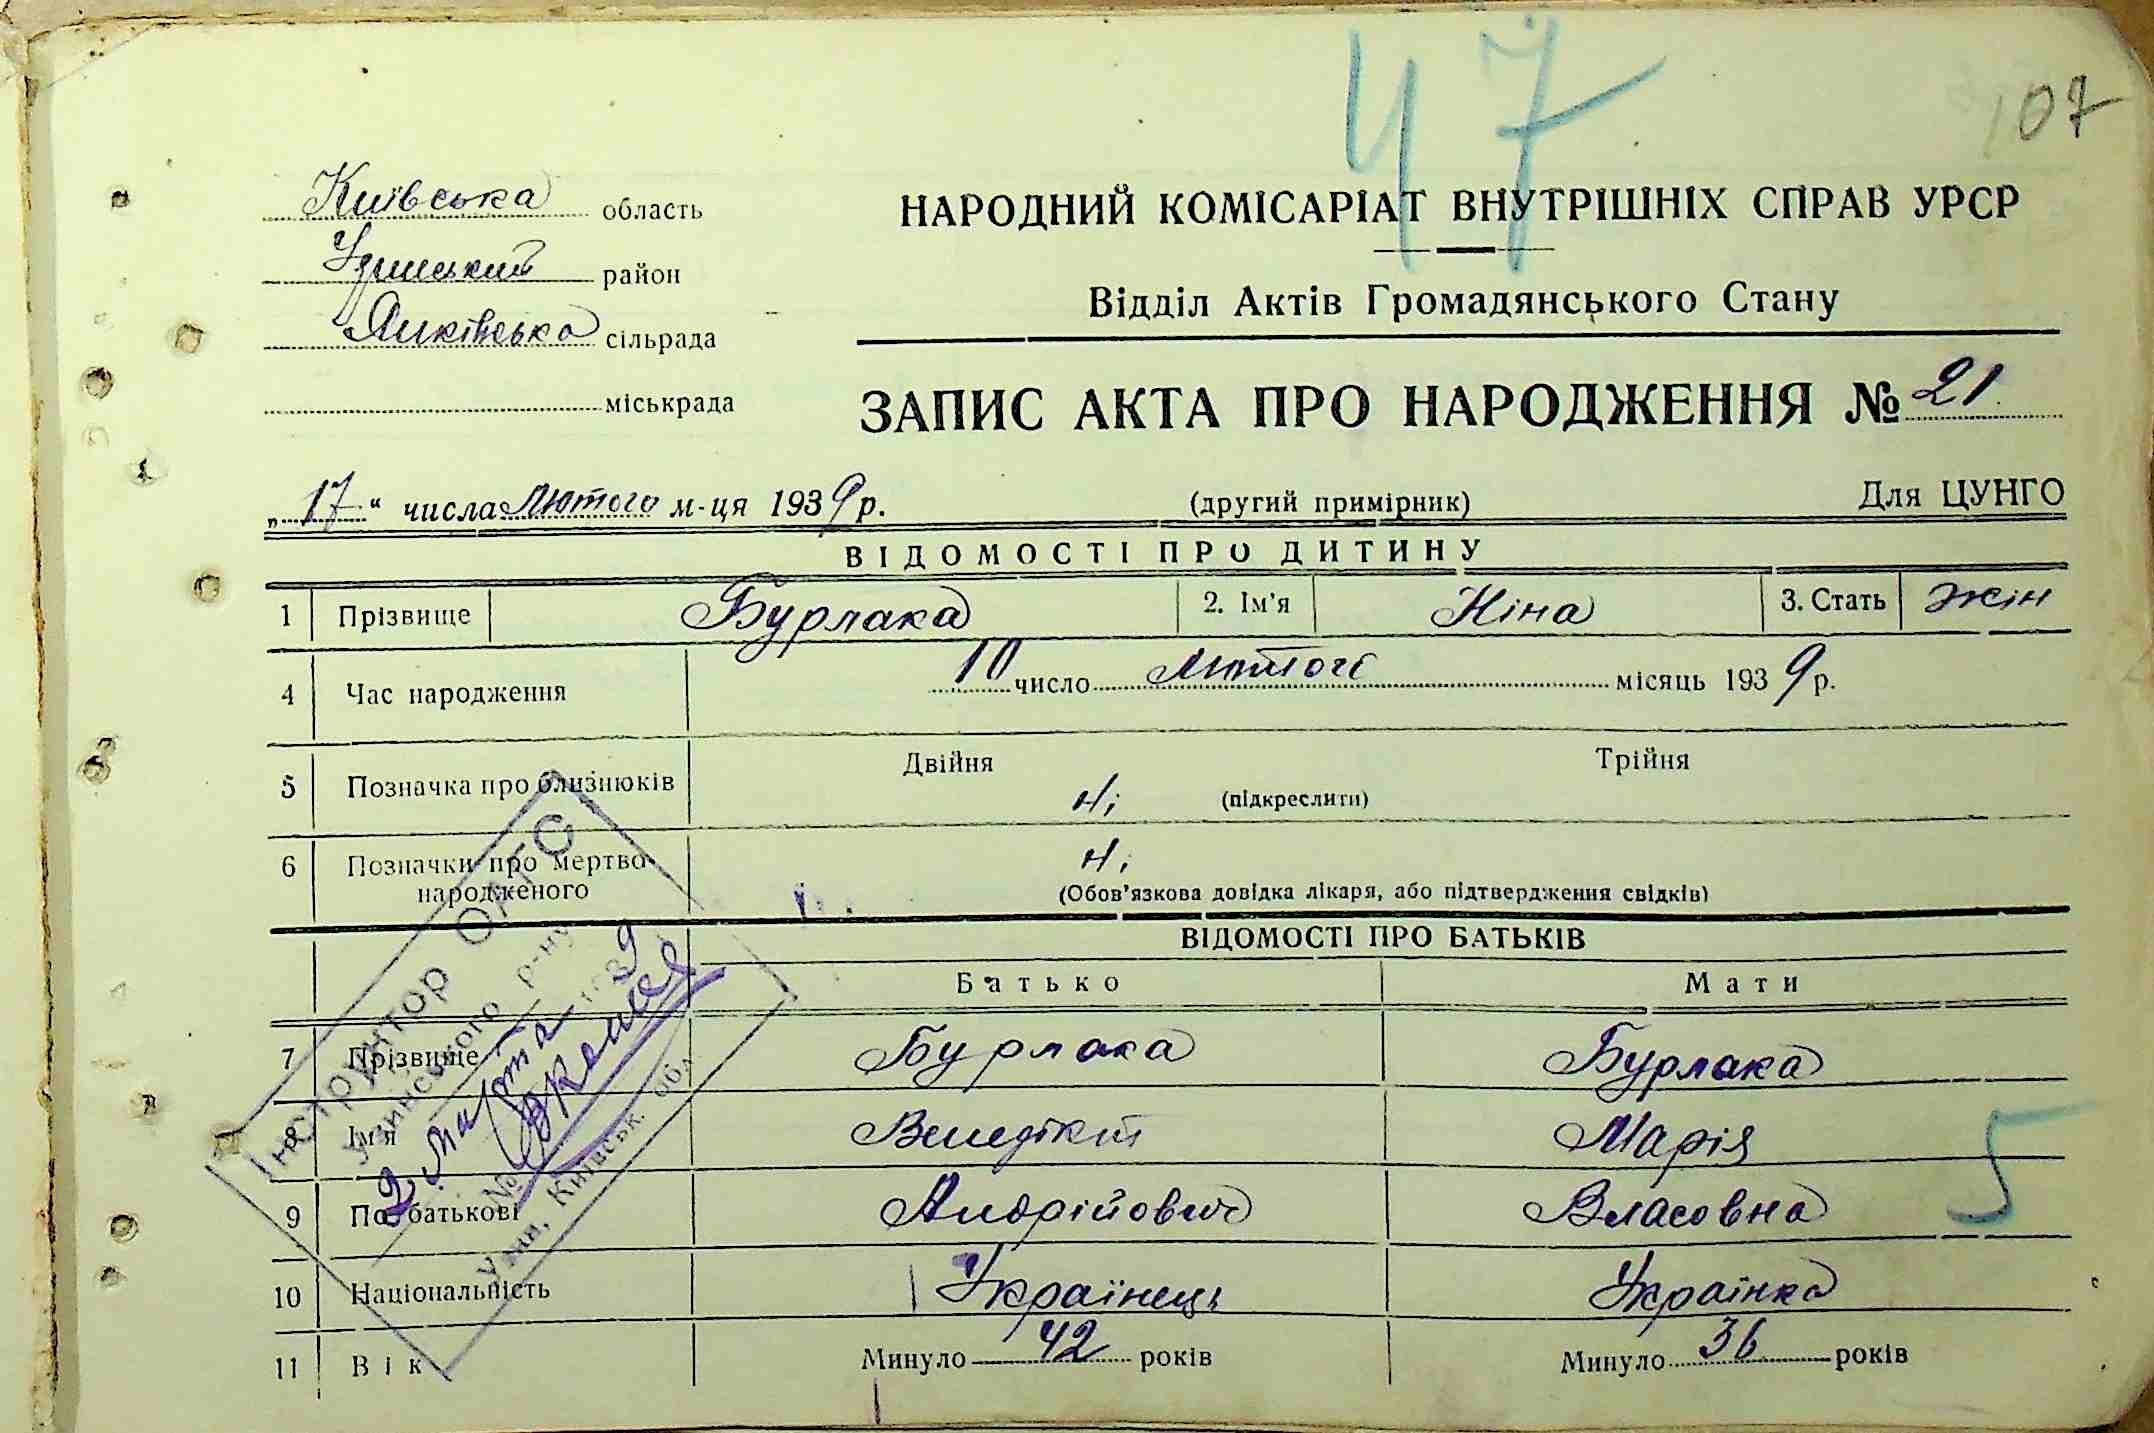 47
107
Київська область
Узинський район
Янківська сільрада
міськрада
НАРОДНИЙ КОМІСАРІАТ ВНУТРІШНІХ СПРАВ УРСР
Відділ Актів Громадянського Стану
ЗАПИС АКТА ПРО НАРОДЖЕННЯ № 21
„17“ числа Лютого м-ця 1939 р. (другий примірник) Для ЦУНГО
ВІДОМОСТІ ПРО ДИТИНУ
1 Прізвище Бурлака 2. Ім'я Ніна 3. Стать жін
4 Час народження 10 число Лютого місяць 1939 р.
Двійня Трійня
5 Позначка про близнюків ні (підкреслити)
6 Позначки про мертво- ні
народженого (Обов'язкова довідка лікаря, або підтвердження свідків)
ВІДОМОСТІ ПРО БАТЬКІВ
Батько Мати
7 Прізвище Бурлака Бурлака
8 Ім'я Венедікт Марія
9 По батькові Андрійович Власовна
5
10 Національність Українець Українка
11 Вік Минуло 42 років Минуло 36 років
Інструктор ОАГС
Узинського р-ну
2 марта 1939
№
Узин, Київськ. обл.